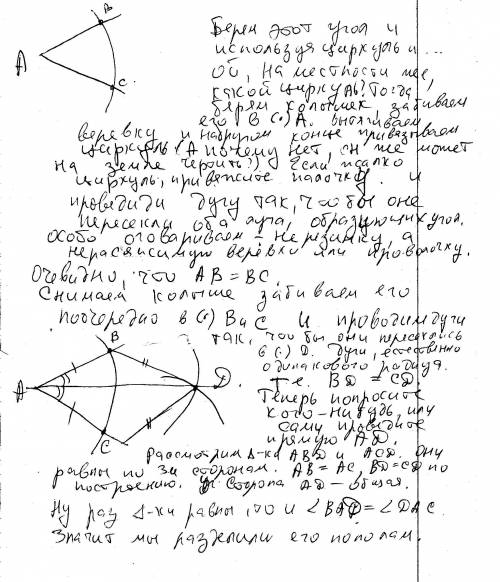 B
A
C
Берем этот угол и
используя циркуль и ...
ой, на местности же,
какой циркуль? Тогда,
берем колышек, забиваем
его в (.) А.
веревку и на другом конце привязываем
циркуль (А почему нет, он же может
на земле чертить?) Если жалко
циркуль, привяжите палочку. и
проведиди дугу так, что бы она
пересекли оба луча, образующих угол.
Особо оговариваем - не резинку, а
нерастяжимую веревку или проволочку.
Очевидно, что AB = BC.
Снимаем колыше забиваем его
поочередно в (.) B и C и проводим дуги
так, что бы они пересеклись
в (.) D. дуги, естественно
одинакового радиуса.
Т.е. BD = CD.
Теперь попросите
кого-нибудь, или
сами проведите
прямую AD.
B
A
D
C
Рассмотрим Δ-ки ABD и ACD. Они
равны по 3м сторонам. AB = AC, BD = CD по
построению. Сторона AD - общая.
Ну раз Δ-ки равны, то и ∠BAD = ∠DAC.
Значит мы разделили его пополам.